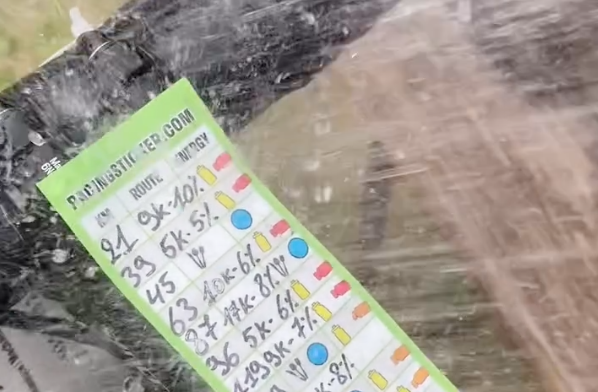 PACINGSTICKER.COM
KM ROUTE ENERGY
21 9K-10%
39 6K-5%
45
63 10K-6%
87 17K-8%
96 5K-6%
9K-7%
K-8%